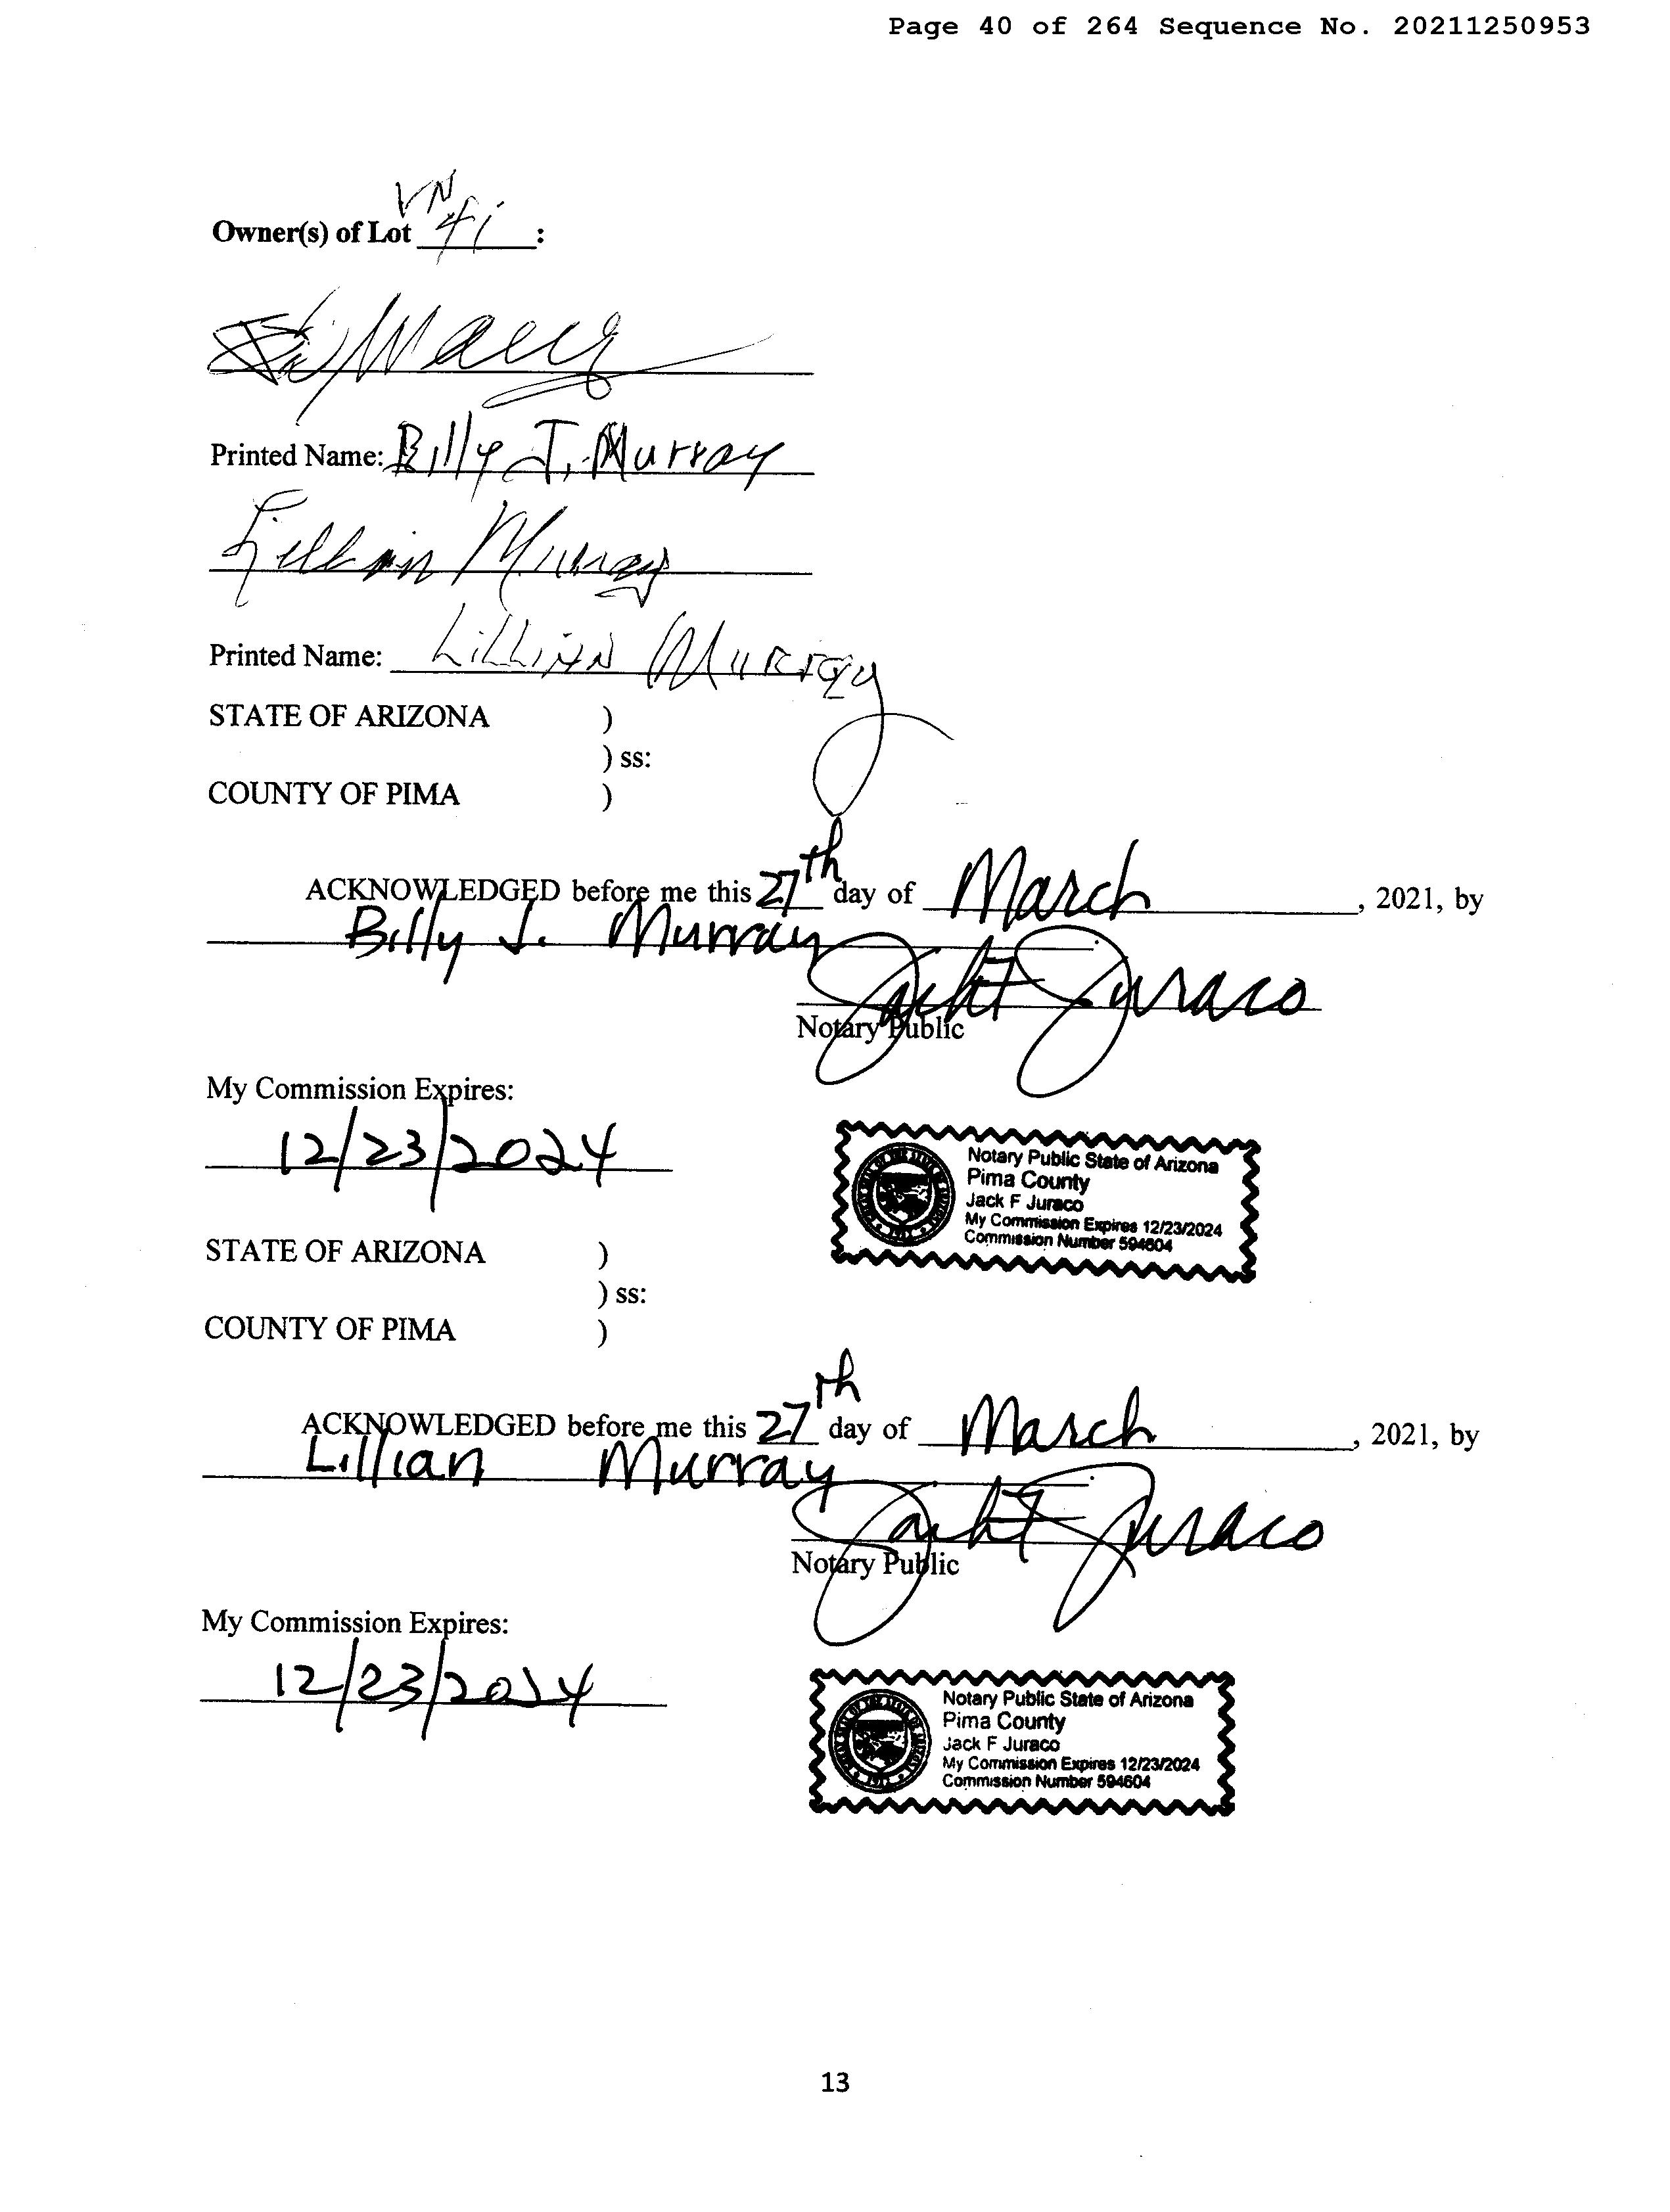 Page 40 of 264 Sequence No. 20211250953
VN
Owner(s) of Lot 41 :
Printed Name: Billy J. Murray
Lillian Murray
Printed Name: Lillian Murray
STATE OF ARIZONA )
) ss:
COUNTY OF PIMA )
ACKNOWLEDGED before me this 27th day of March, 2021, by
Billy J. Murray
Jack F Juraco
Notary Public
My Commission Expires:
12/23/2024
Notary Public State of Arizona
Pima County
Jack F Juraco
My Commission Expires 12/23/2024
Commission Number 594604
STATE OF ARIZONA )
) ss:
COUNTY OF PIMA )
ACKNOWLEDGED before me this 27th day of March, 2021, by
Lillian Murray
Jack F Juraco
Notary Public
My Commission Expires:
12/23/2024
Notary Public State of Arizona
Pima County
Jack F Juraco
My Commission Expires 12/23/2024
Commission Number 594604
13